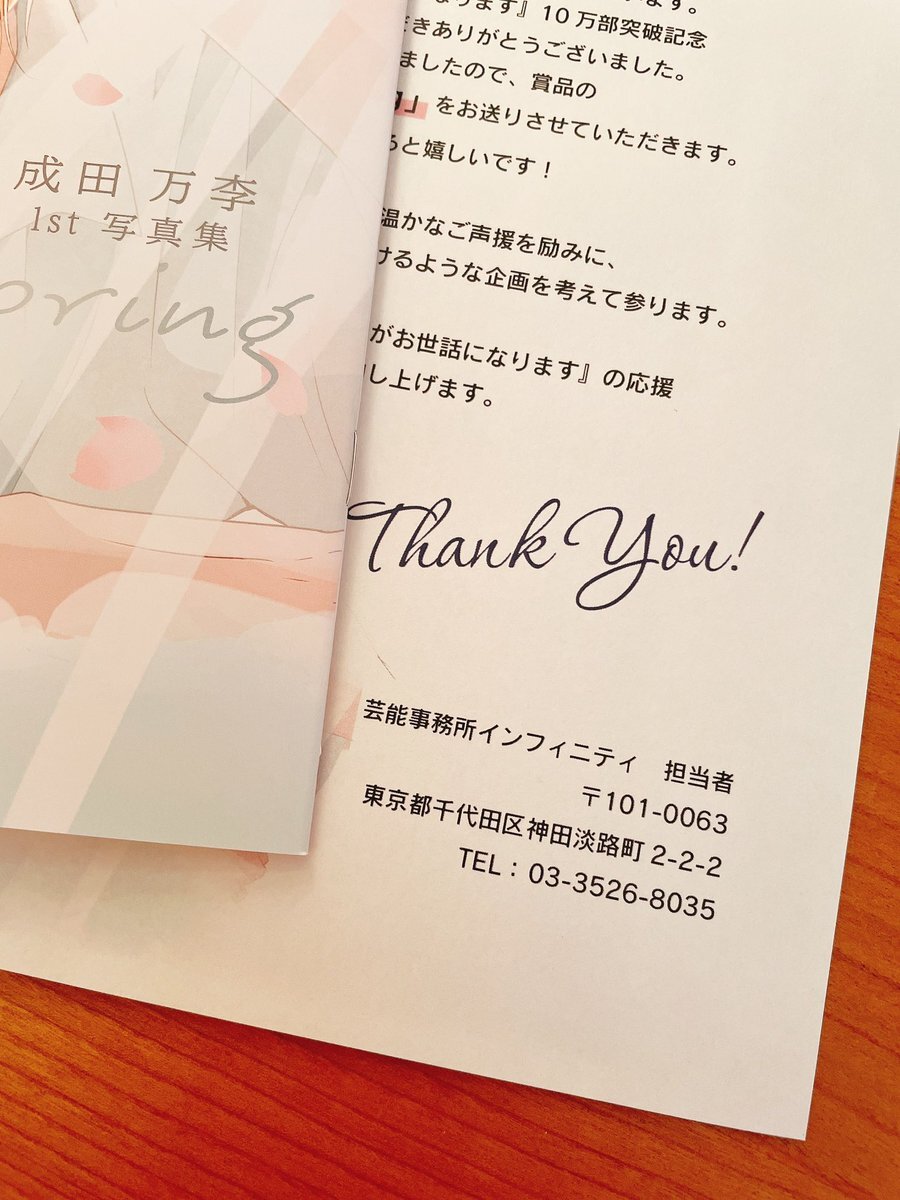 成田 万李
1st 写真集
pring
ます。
なります』10万部突破記念
だきありがとうございました。
ましたので、賞品の
」をお送りさせていただきます。
ると嬉しいです！
温かなご声援を励みに、
けるような企画を考えて参ります。
がお世話になります』の応援
し上げます。
Thank You!
芸能事務所インフィニティ　担当者
〒101-0063
東京都千代田区神田淡路町 2-2-2
TEL：03-3526-8035